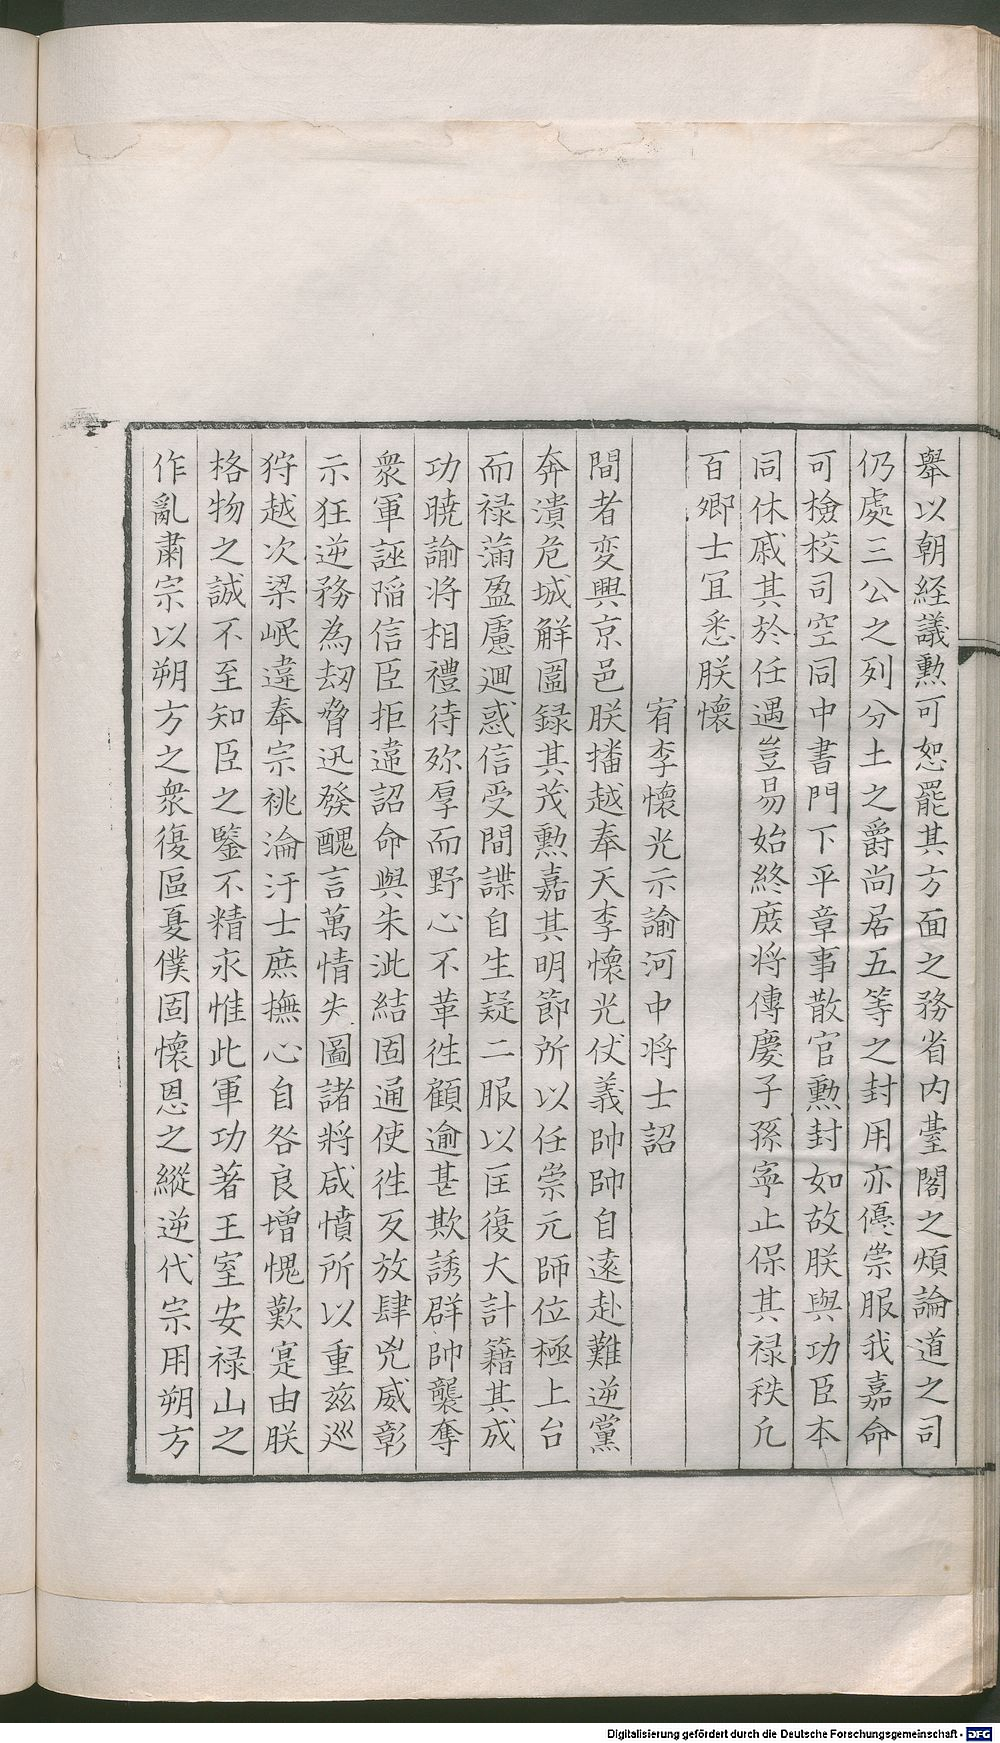 舉以朝経議勲可恕罷其方面之務省内臺閣之煩論道之司
仍處三公之列分土之爵尚居五等之封用亦優崇服我嘉命
可檢校司空同中書門下平章事散官勲封如故朕與功臣本
同休戚其於任遇豈易始終庶将傳慶子孫寧止保其禄秩凡
百卿士冝悉朕懷
宥李懷光示諭河中将士詔
間者変興京邑朕播越奉天李懷光仗義帥帥自遠赴難逆黨
奔潰危城解圍録其茂勲嘉其明節所以任崇元師位極上台
而禄滿盈慮迴惑信受間諜自生疑二服以匡復大計籍其成
功曉諭将相禮待弥厚而野心不革徃顧逾甚欺誘群帥襲奪
衆軍誣陷信臣拒違詔命與朱泚結固通使徃反放肆兇威彰
示狂逆務為刼脅迅發醜言萬情失圖諸將咸憤所以重茲巡
狩越次梁岷違奉宗祧淪汙士庶撫心自咎良增愧歎寔由朕
格物之誠不至知臣之鑒不精永惟此軍功著王室安禄山之
作亂肅宗以朔方之衆復區夏僕固懷恩之縱逆代宗用朔方
Digitalisierung gefördert durch die Deutsche Forschungsgemeinschaft - DFG